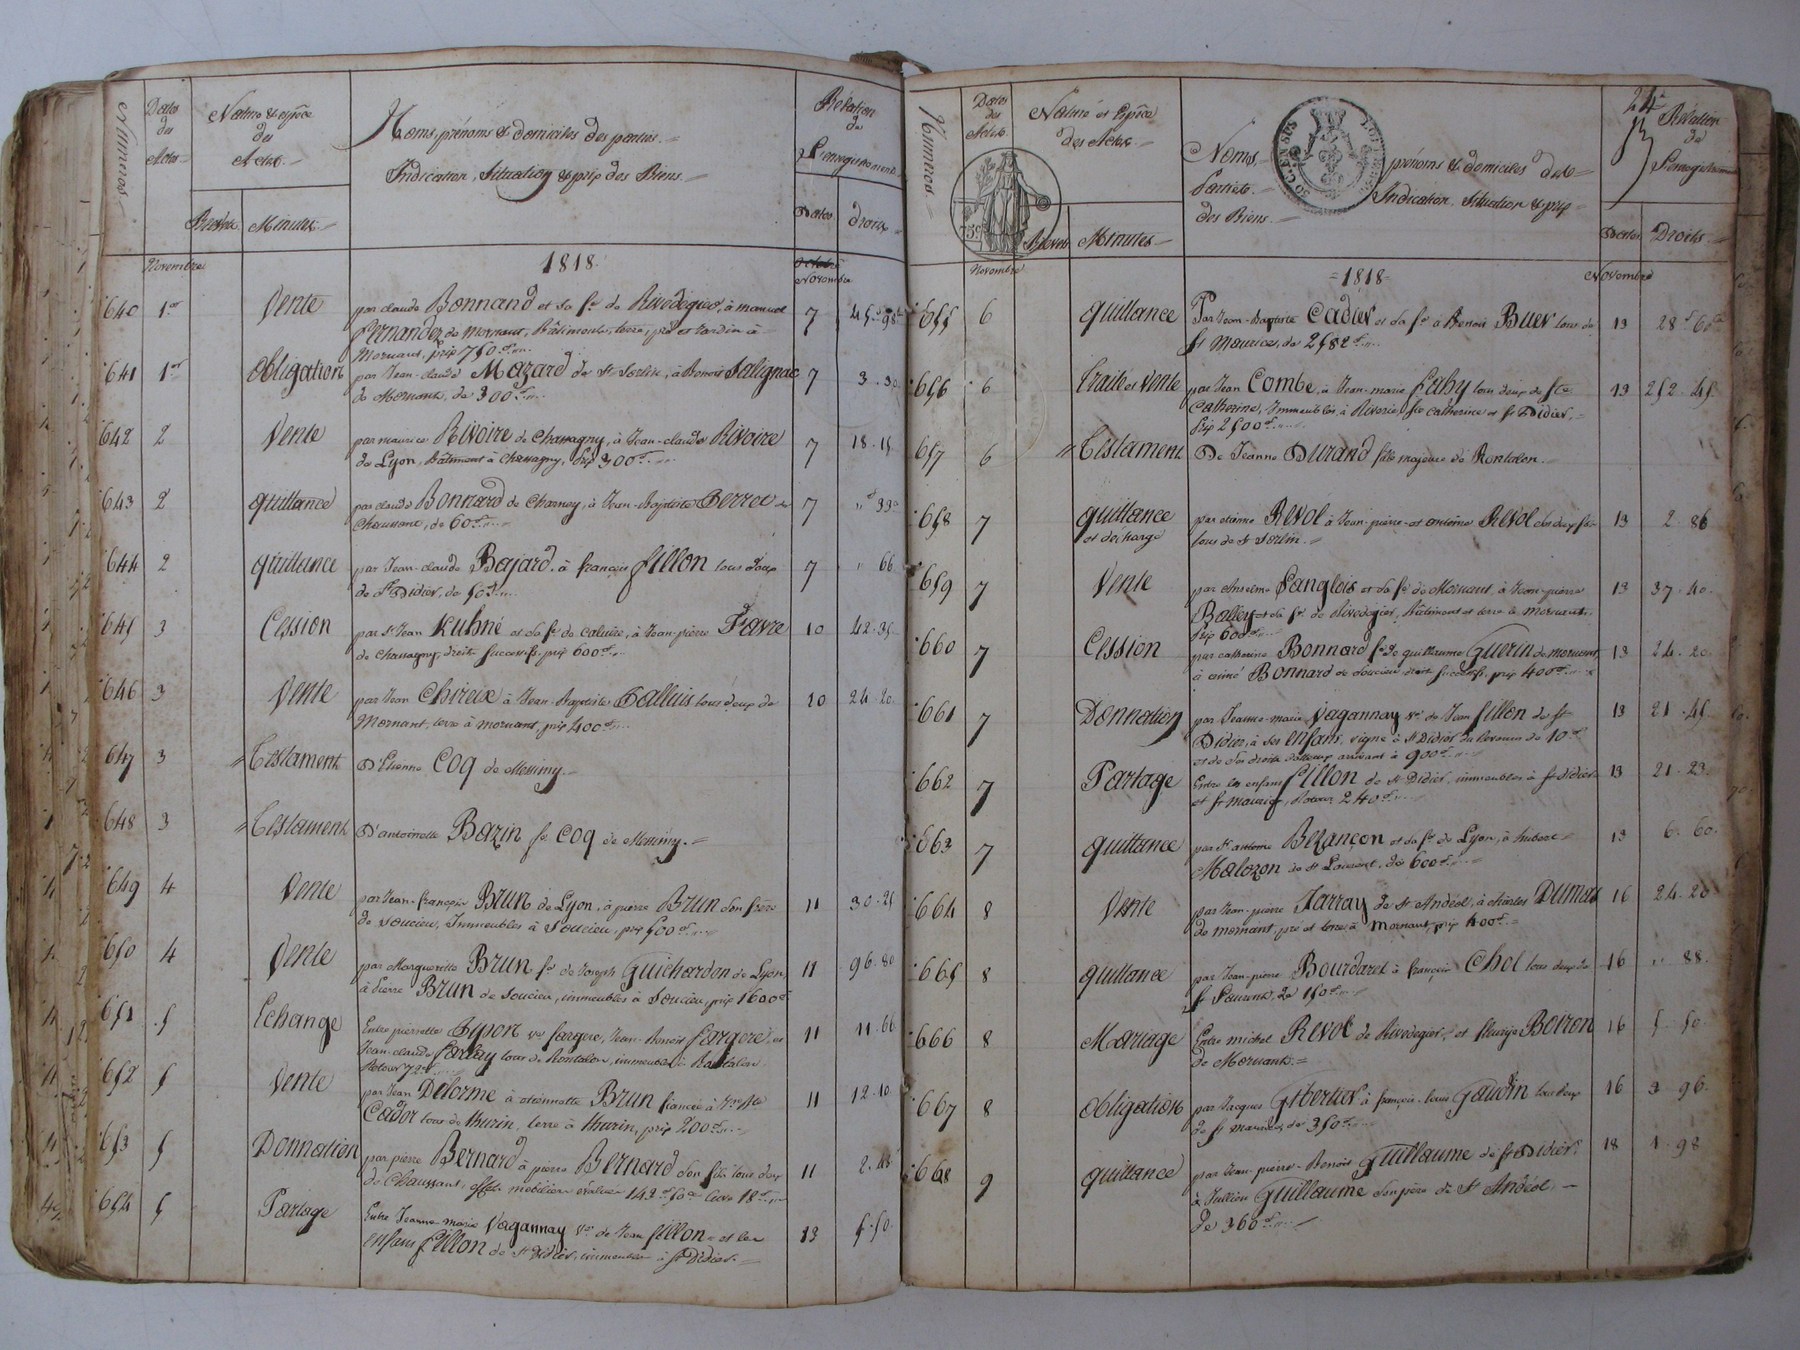 Numeros
Dates des Actes
Nature & espèce des Actes
Brevets Minutes
Noms, prénoms & domiciles des parties.
Indication, Situation & prix des Biens.
Relation de l'enregistrement
Dates droits
Novembre 1818 Novembre
640 1er Vente par claude Bonnand et sa fe de Rivedegier, à manuel 7 45 98
Fernandez de Mornant, Bâtiments, terre, pré et Jardin à
Mornant, prix 750
641 1er Obligation par Jean-claude Mazard de St Sorlin, à Benoit Salignac 7 3 30
de Mornant, de 300
642 2 Vente par maurice Rivoire de Chassagny, à Jean-claude Rivoire 7 18 15
de Lyon, Bâtiment à Chassagny, prix 300
643 2 quittance par claude Bonnard de Charnay, à Jean-Baptiste Berret de 7 33
Chaussant, de 60
644 2 quittance par Jean-claude Bajard, à françois fillon tous deux 7 66
de St Didier, de 50
645 3 Cession par St Jean Kuhné et sa fe de caluire, à Jean-pierre Favre 10 42 35
de Chassagny, droits successifs, prix 600
646 3 Vente par Jean Chireux à Jean-Baptiste Balluis tous deux de 10 24 20
Mornant, terre à mornant, prix 400
647 3 Testament D'Etienne Coq de Messimy
648 3 Testament D'antoinette Bazin fe Coq de Messimy
649 4 Vente par Jean-françois Brun de Lyon, à pierre Brun son frère 11 30 25
de Soucieu, Immeubles à Soucieu, prix 500
650 4 Vente par Marguerite Brun fe de Joseph Guichardon de Lyon, 11 96 80
à Pierre Brun de Soucieu, immeubles à Soucieu, prix 1600
651 5 Echange Entre pierrette ve fargere, Jean-Benoit fargere, et 11 11 66
Jean-claude tous de Rontalon, immeubles à Rontalon
Retour 72
652 5 Vente par Jean Delorme à etiennette Brun fiancée à 11 12 10
Cador tous de thurin, terre à thurin, prix 200
653 5 Donnation par pierre Bernard à pierre Bernard son fils tous deux 11 2
de Chaussant, effets mobiliers évalués 142 50
654 5 Partage Entre Jeanne-marie Vagannay ve de Jean fillon et les 13 5 50
enfans fillon de St Didier, immeubles à St Didier
Numeros
Dates des Actes
Nature et Espèce des Actes
Brevets Minutes
75 c
Noms, prénoms & domiciles des
Parties.
Indication, Situation & prix
des Biens.
50 CENT
24e
Relation de l'enregistrement
Dates Droits
Novembre 1818 Novembre
655 6 quittance Par Jean-Baptiste Cadier et sa fe à Benoit Buer tous de 13 28 60
St Maurice, de 2582
656 6 Traité et Vente par Jean Combe, à Jean-marie fahy tous deux de Ste 13 252 45
Catherine, Immeubles à Riverie, Ste Catherine et St Didier
Prix 2500
657 6 Testament De Jeanne Durand fille majeure de Rontalon
658 7 quittance par etienne Revol à Jean-pierre et antoine Revol 13 2 86
et decharge tous de St Sorlin
659 7 Vente par Anselme Langlois et sa fe de Mornant, à Jean-pierre 13 37 40
Balley et sa fe de Rivedegier, Bâtiment et terre à mornant
Prix 600
660 7 Cession par catherine Bonnard fe de guillaume Guerin de mornant, 13 24 20
à aimé Bonnard de Soucieu droits successifs, prix 400
661 7 Donnation par Jeanne-marie Vagannay ve de Jean fillon de St 13 21 45
Didier, à ses enfans, vigne à St Didier du Revenu de 10
et de ses droits arrivant à 900
662 7 Partage Entre les enfans fillon de St Didier, immeubles à St Didier 13 21 23
et St maurice, Retour 240
663 7 quittance par St antoine Bezançon et sa fe de Lyon, à hubert 13 6 60
Malozon de St Laurent, de 600
664 8 Vente par Jean-pierre Jarray de St Andéol, à charles Dumas 16 24 20
de mornant, pré et terre à mornant, prix 400
665 8 quittance par Jean-pierre Bourdaret à françois Chol tous deux de 16 88
St Laurent, de 150
666 8 Mariage Entre michel Revol de Rivedegier, et fleurie Boiron 16 5 50
de Mornant
667 8 obligation par Jacques Gibertier à françois-louis Gaudin tous deux 16 3 96
de St maurice, de 350
668 9 quittance par Jean-pierre-Benoit Guillaume de St Didier 18 1 98
à Jullien Guillaume son père de St Andéol,
de 366